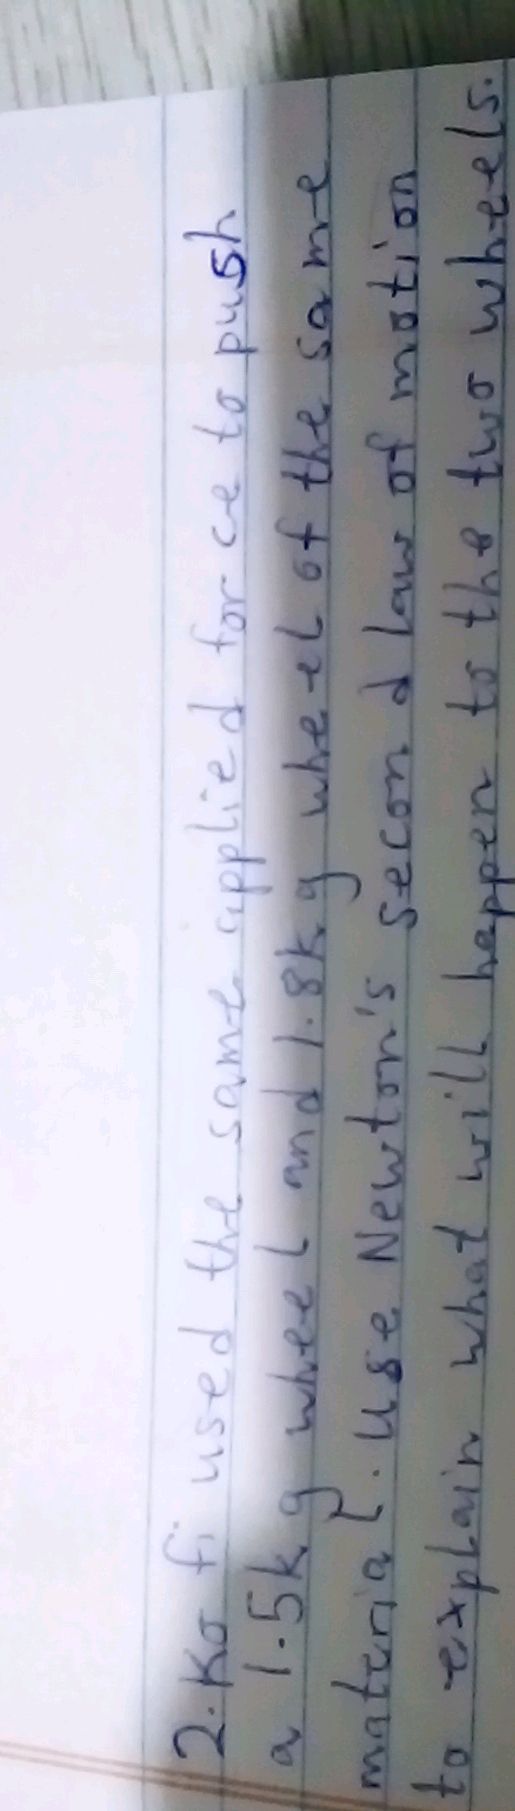 2. Kofi used the same applied force to push
a 1.5kg wheel and 1.8kg wheel of the same
material. Use Newton's second law of motion
to explain what will happen to the two wheels.